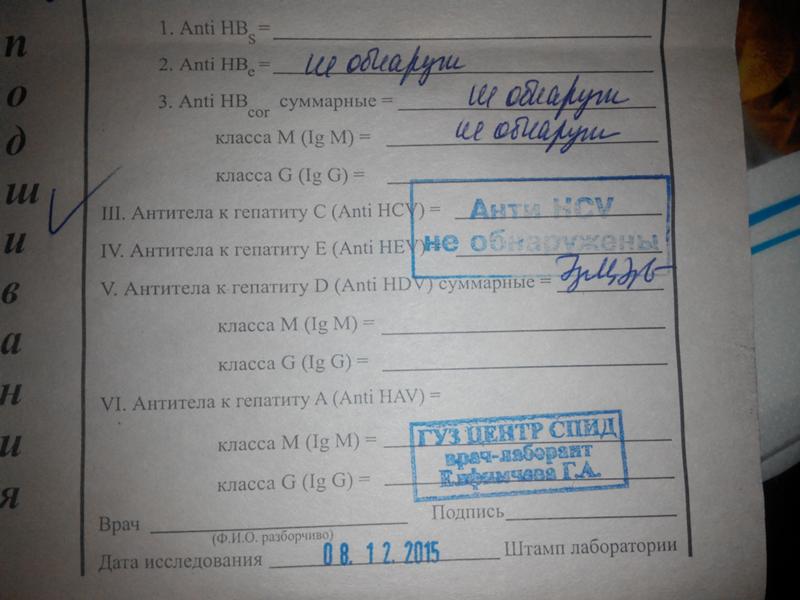 подшивания
1. Anti HBs =
2. Anti HBe = не обнаруж
3. Anti HBcor суммарные = не обнаруж
класса M (Ig M) = не обнаруж
класса G (Ig G) =
III. Антитела к гепатиту C (Anti HCV) = Анти HCV
не обнаружены
IV. Антитела к гепатиту E (Anti HEV)
V. Антитела к гепатиту D (Anti HDV) суммарные =
класса M (Ig M) =
класса G (Ig G) =
VI. Антитела к гепатиту A (Anti HAV) =
класса M (Ig M) =
класса G (Ig G) =
ГУЗ ЦЕНТР СПИД
врач-лаборант
Елфимчева Г.А.
Врач Подпись
(Ф.И.О. разборчиво)
Дата исследования 08. 12. 2015 Штамп лаборатории